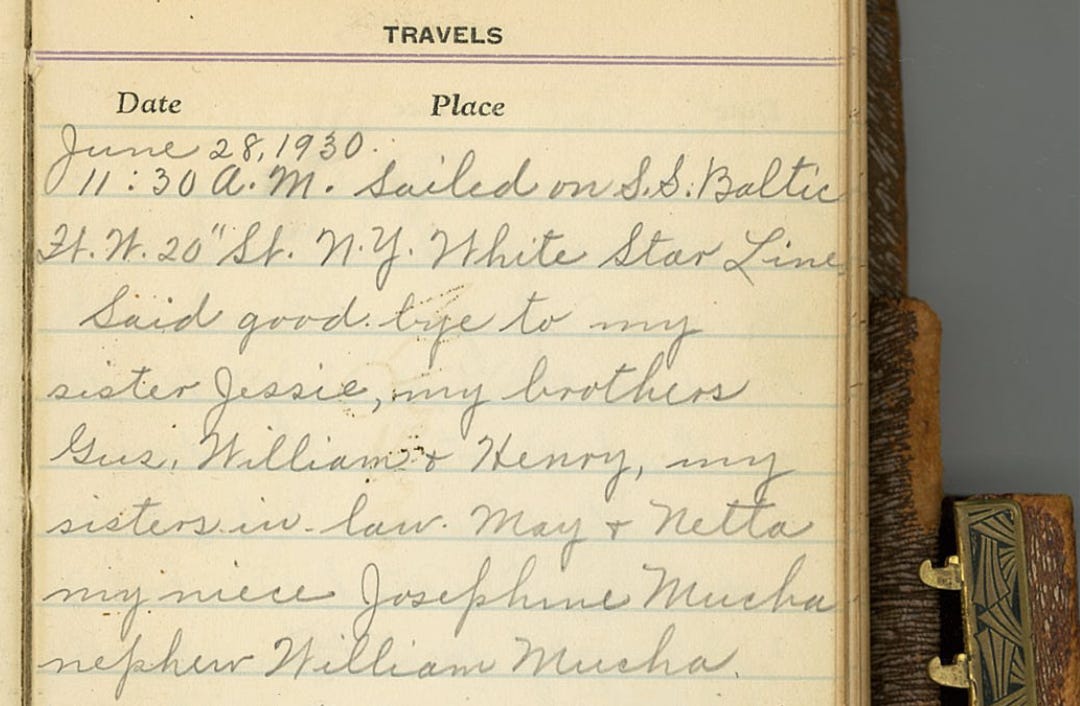 TRAVELS
Date Place
June 28, 1930.
11:30 A.M. Sailed on S.S. Baltic
Ft. W. 20" St. N.Y. White Star Line
Said good-bye to my
sister Jessie, my brothers
Gus, William & Henry, my
sisters-in-law May & Netta
my niece Josephine Mucha
nephew William Mucha.